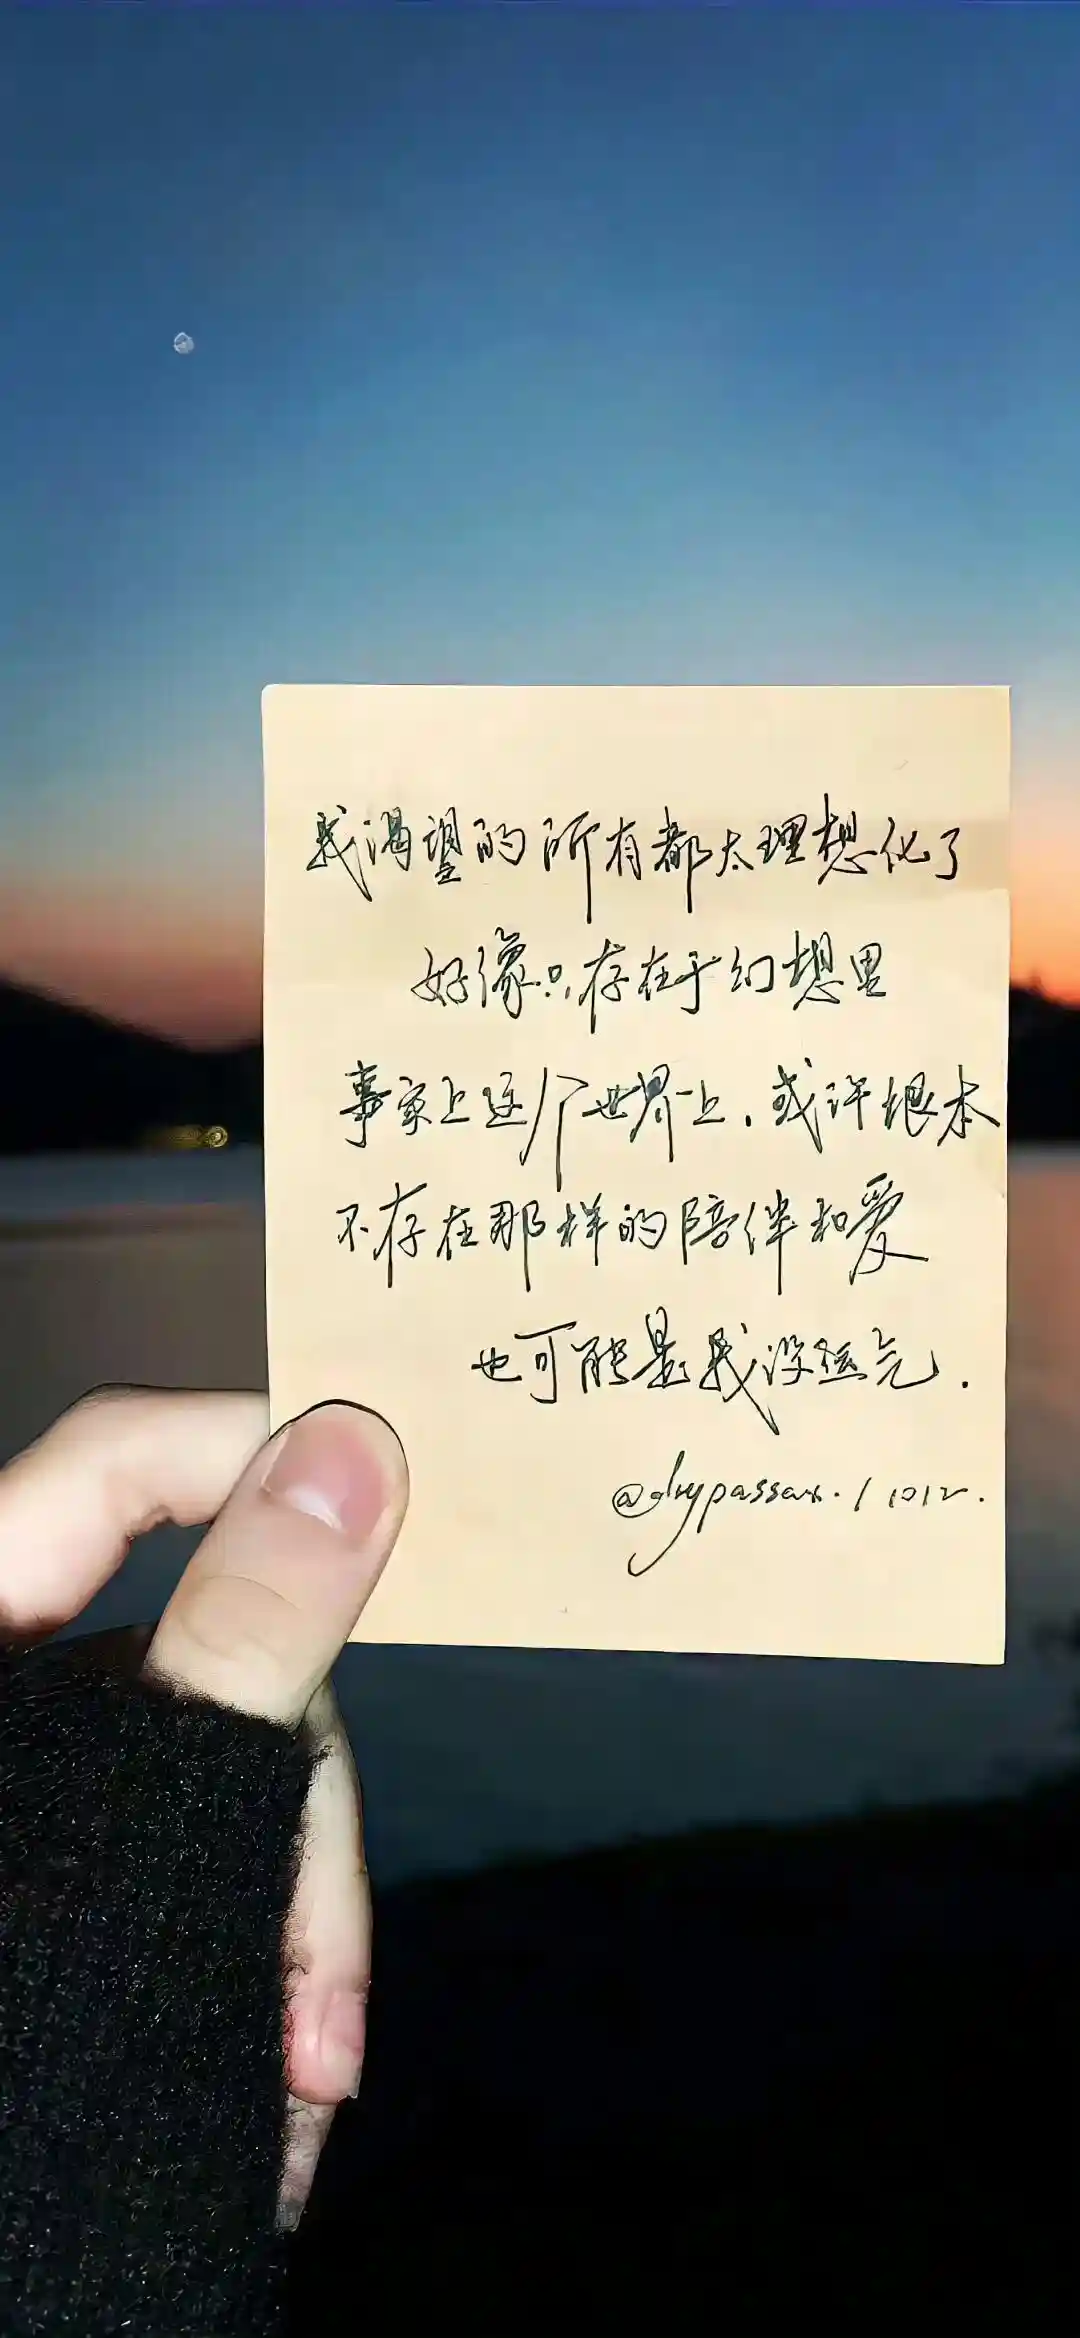 我渴望的所有都太理想化了
好像只存在于幻想里
事实上这个世界上,或许根本
不存在那样的陪伴和爱
也可能是我没运气.
/1012.